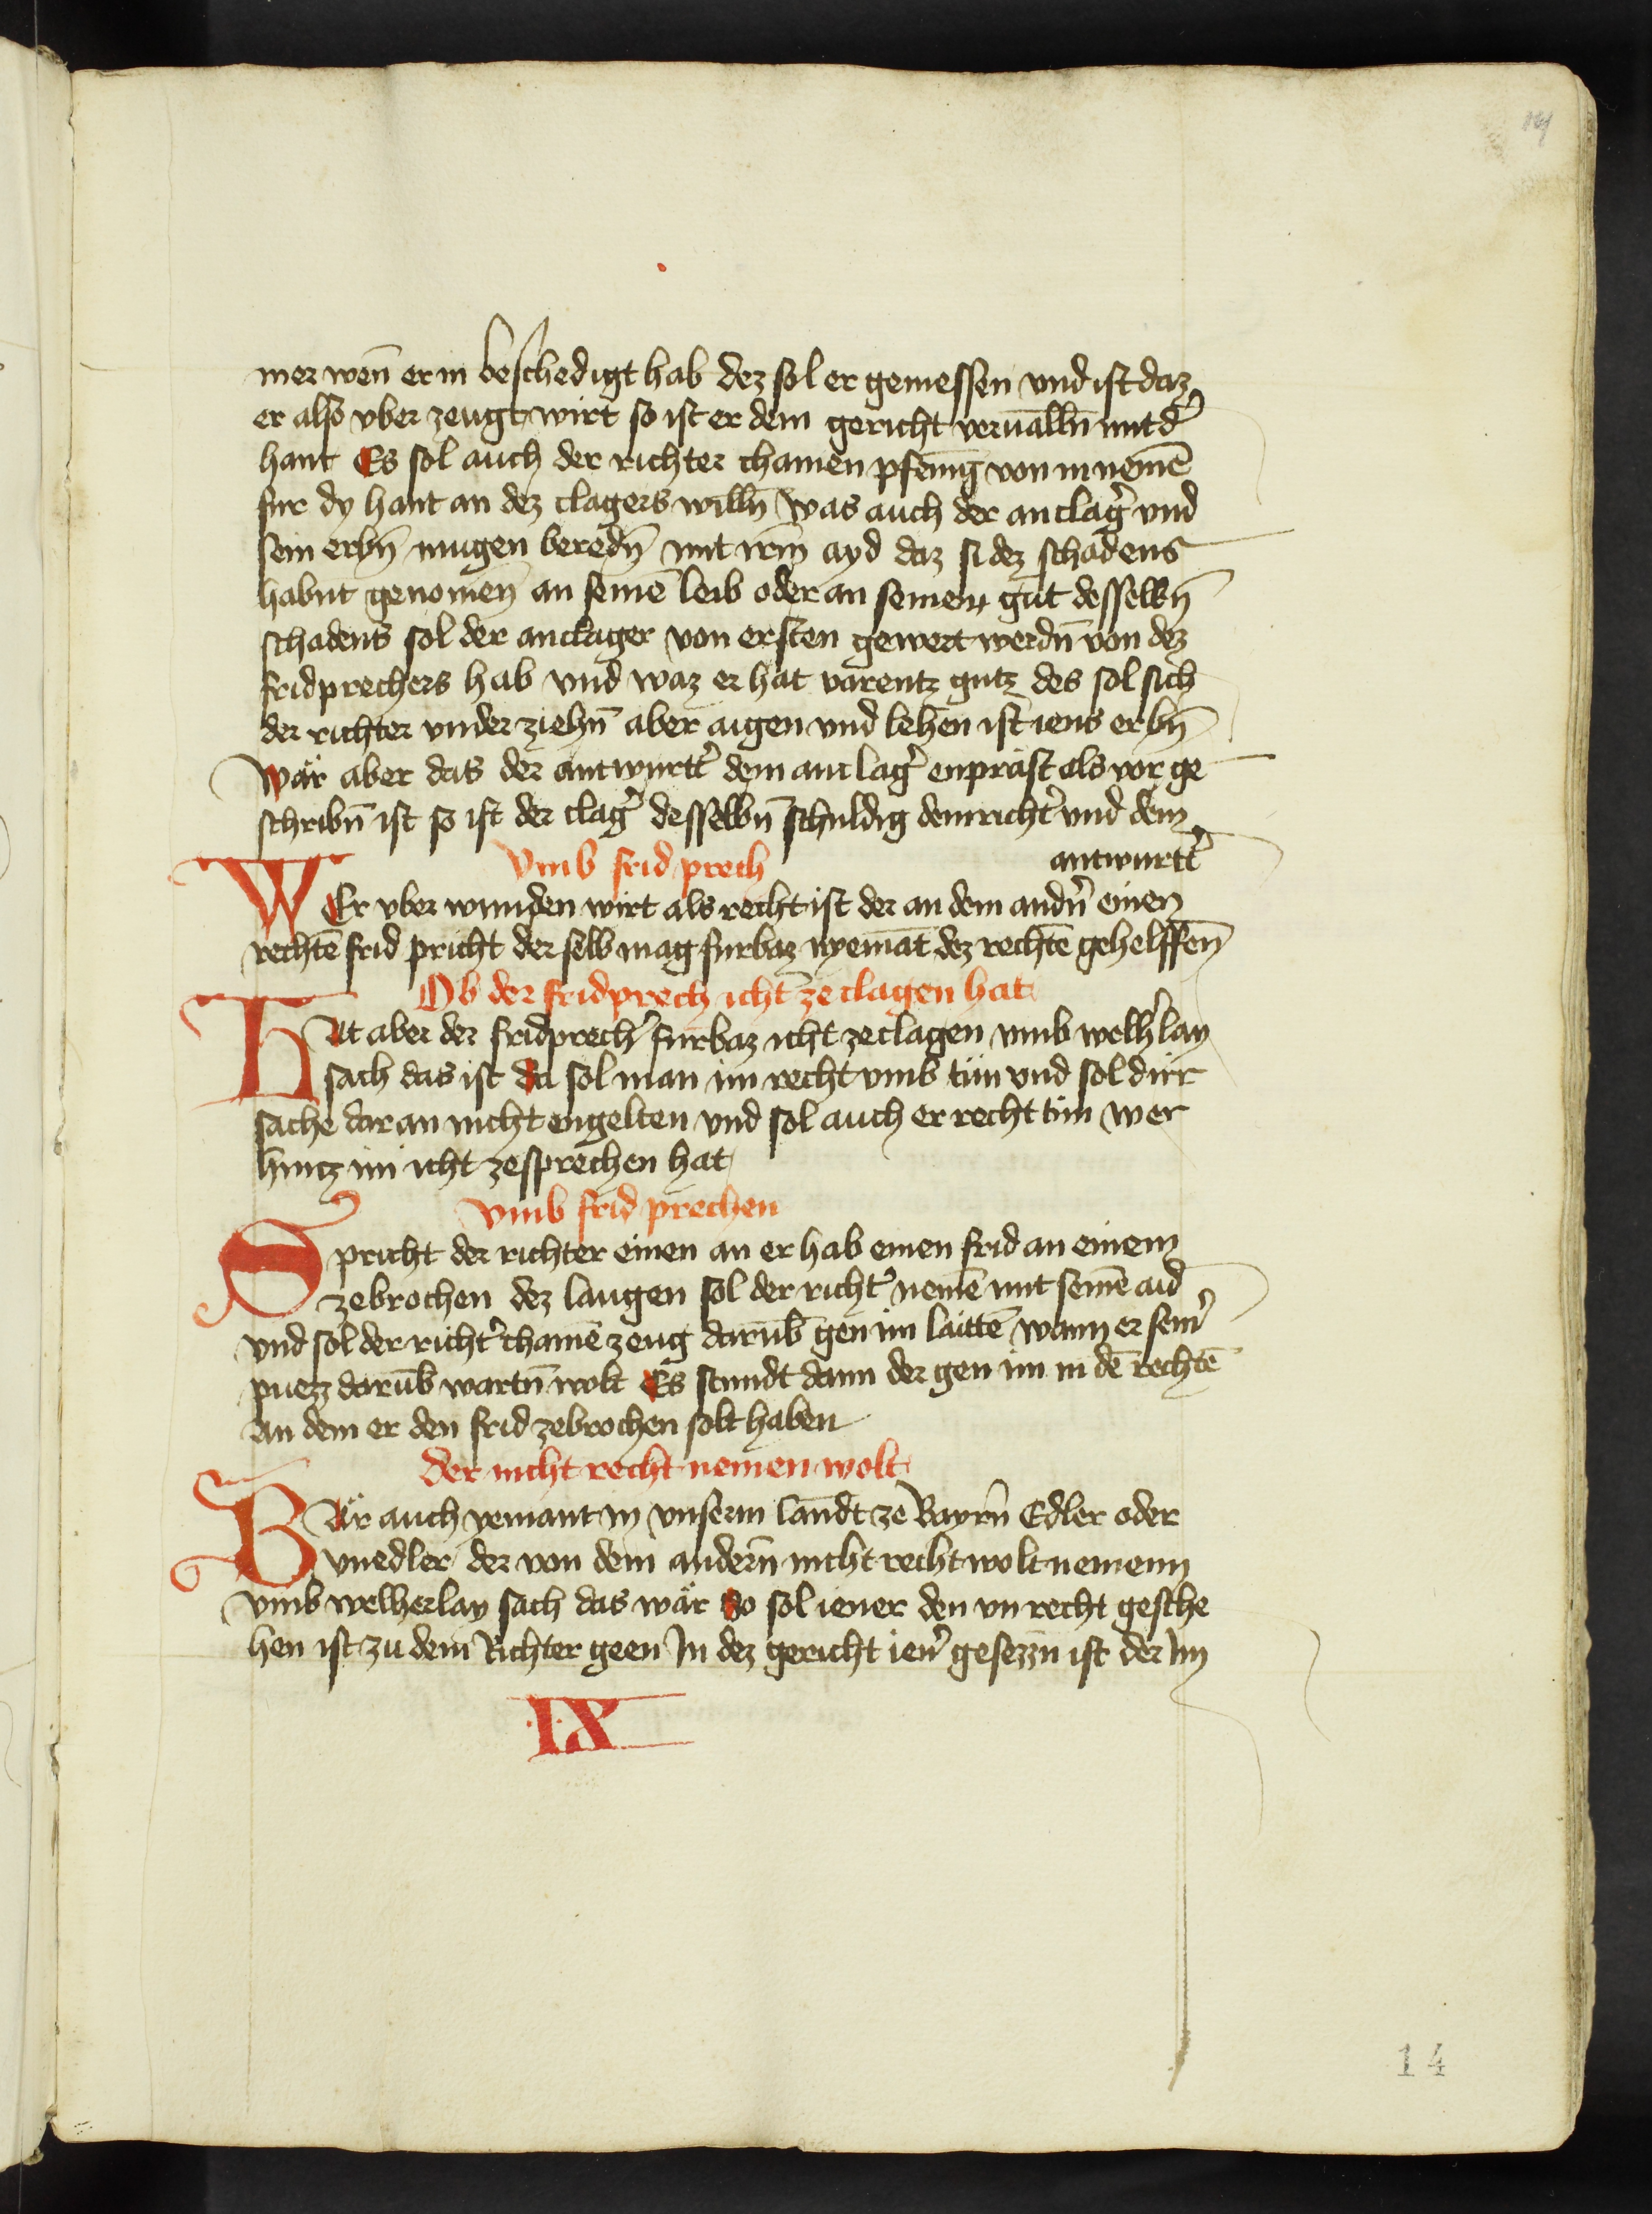 14
mer wen̄ er in beschedigt hab dez sol er geniessen vnd ist daz
er also vber zeugt wirt so ist er dem gericht verualln̄ mit d'
hant Es sol auch der richter chainen pfenīg von in nemē
fur dy hant an dez clagers willn̄ was auch der anclag' vnd
sein erbn̄ mugen beredn̄ mit irm̄ ayd daz si dez schadens
habnt genomen̄ an seinē leib oder an seinem gut desselbn̄
schadens sol der anclager von ersten gewert werdn̄ von dez
fridprechers hab vnd waz er hat varentz gutz des sol sich
der richter vnder ziehn̄ aber aigen vnd lehen ist iens erbn̄
wär aber das der antwurtt' dem anclag' enpräst als vor ge
schribn̄ ist so ist der clag' desselbn̄ schuldig dem richt' vnd dem
antwurtt'
vmb frid prech
WEr vber wunden wirt als recht ist der an dem andn̄' einen
rechtē frid pricht der selb mag furbaz nyemāt dez rechtē gehelffen̄
Ob der fridprech icht ze clagen hat
HAt aber der fridprech' furbaz icht zeclagen vmb welh'lay
sach das ist da sol man im recht vmb tün vnd sol dirr
sache dar an nicht engelten vnd sol auch er recht tün wer
hintz im icht zesprechen hat
vmb frid prechen
Spricht der richter einen an er hab einen frid an einem
zebrochen dez laugen sol der richt' nemē mit seinē aid
vnd sol der richt' chainē zeug darūb gen im laittē wann er sein'
puezz darūb wartn̄ wolt Es stundt dann der gen im in dē rechtē
an dem er den frid zebrochen solt haben
der nicht recht nemen wolt
WÄr auch yemant in vnserm landt ze Bayrn̄ Edler oder
vnedler der von dem andern̄ nicht recht wolt nemenn
vmb welherlay sach das wär so sol iener den vnrecht gesche
hen ist zu dem Richter geen In dez gericht ien' gesezzn̄ ist der Im
·IX
14